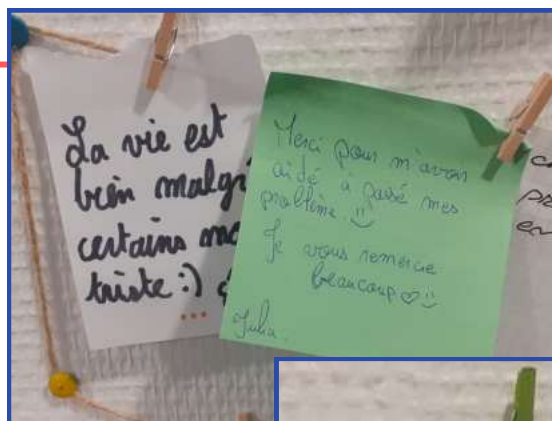 La vie est
bien malgr
certains mo
triste :)
...
Merci pour m'avoir
aidé à passé mes
problème. :)
Je vous remercie
beaucoup ♡ :)
Julia.